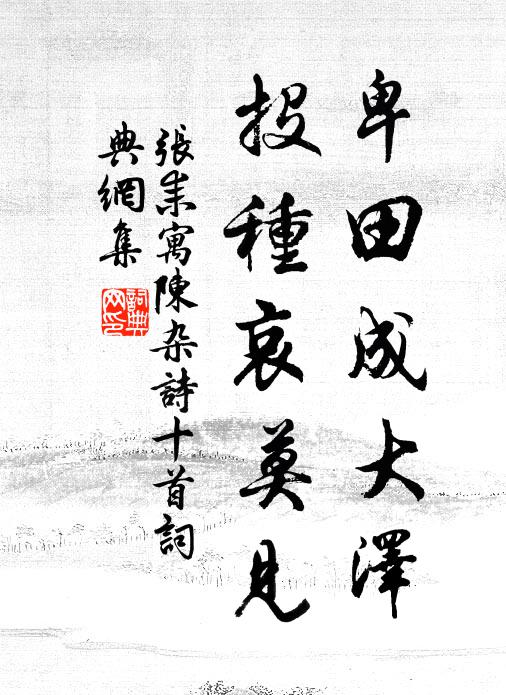 卑田成大澤
投種哀莫見
張耒寓陳杂詩十首詞
典網集
詞典
网印